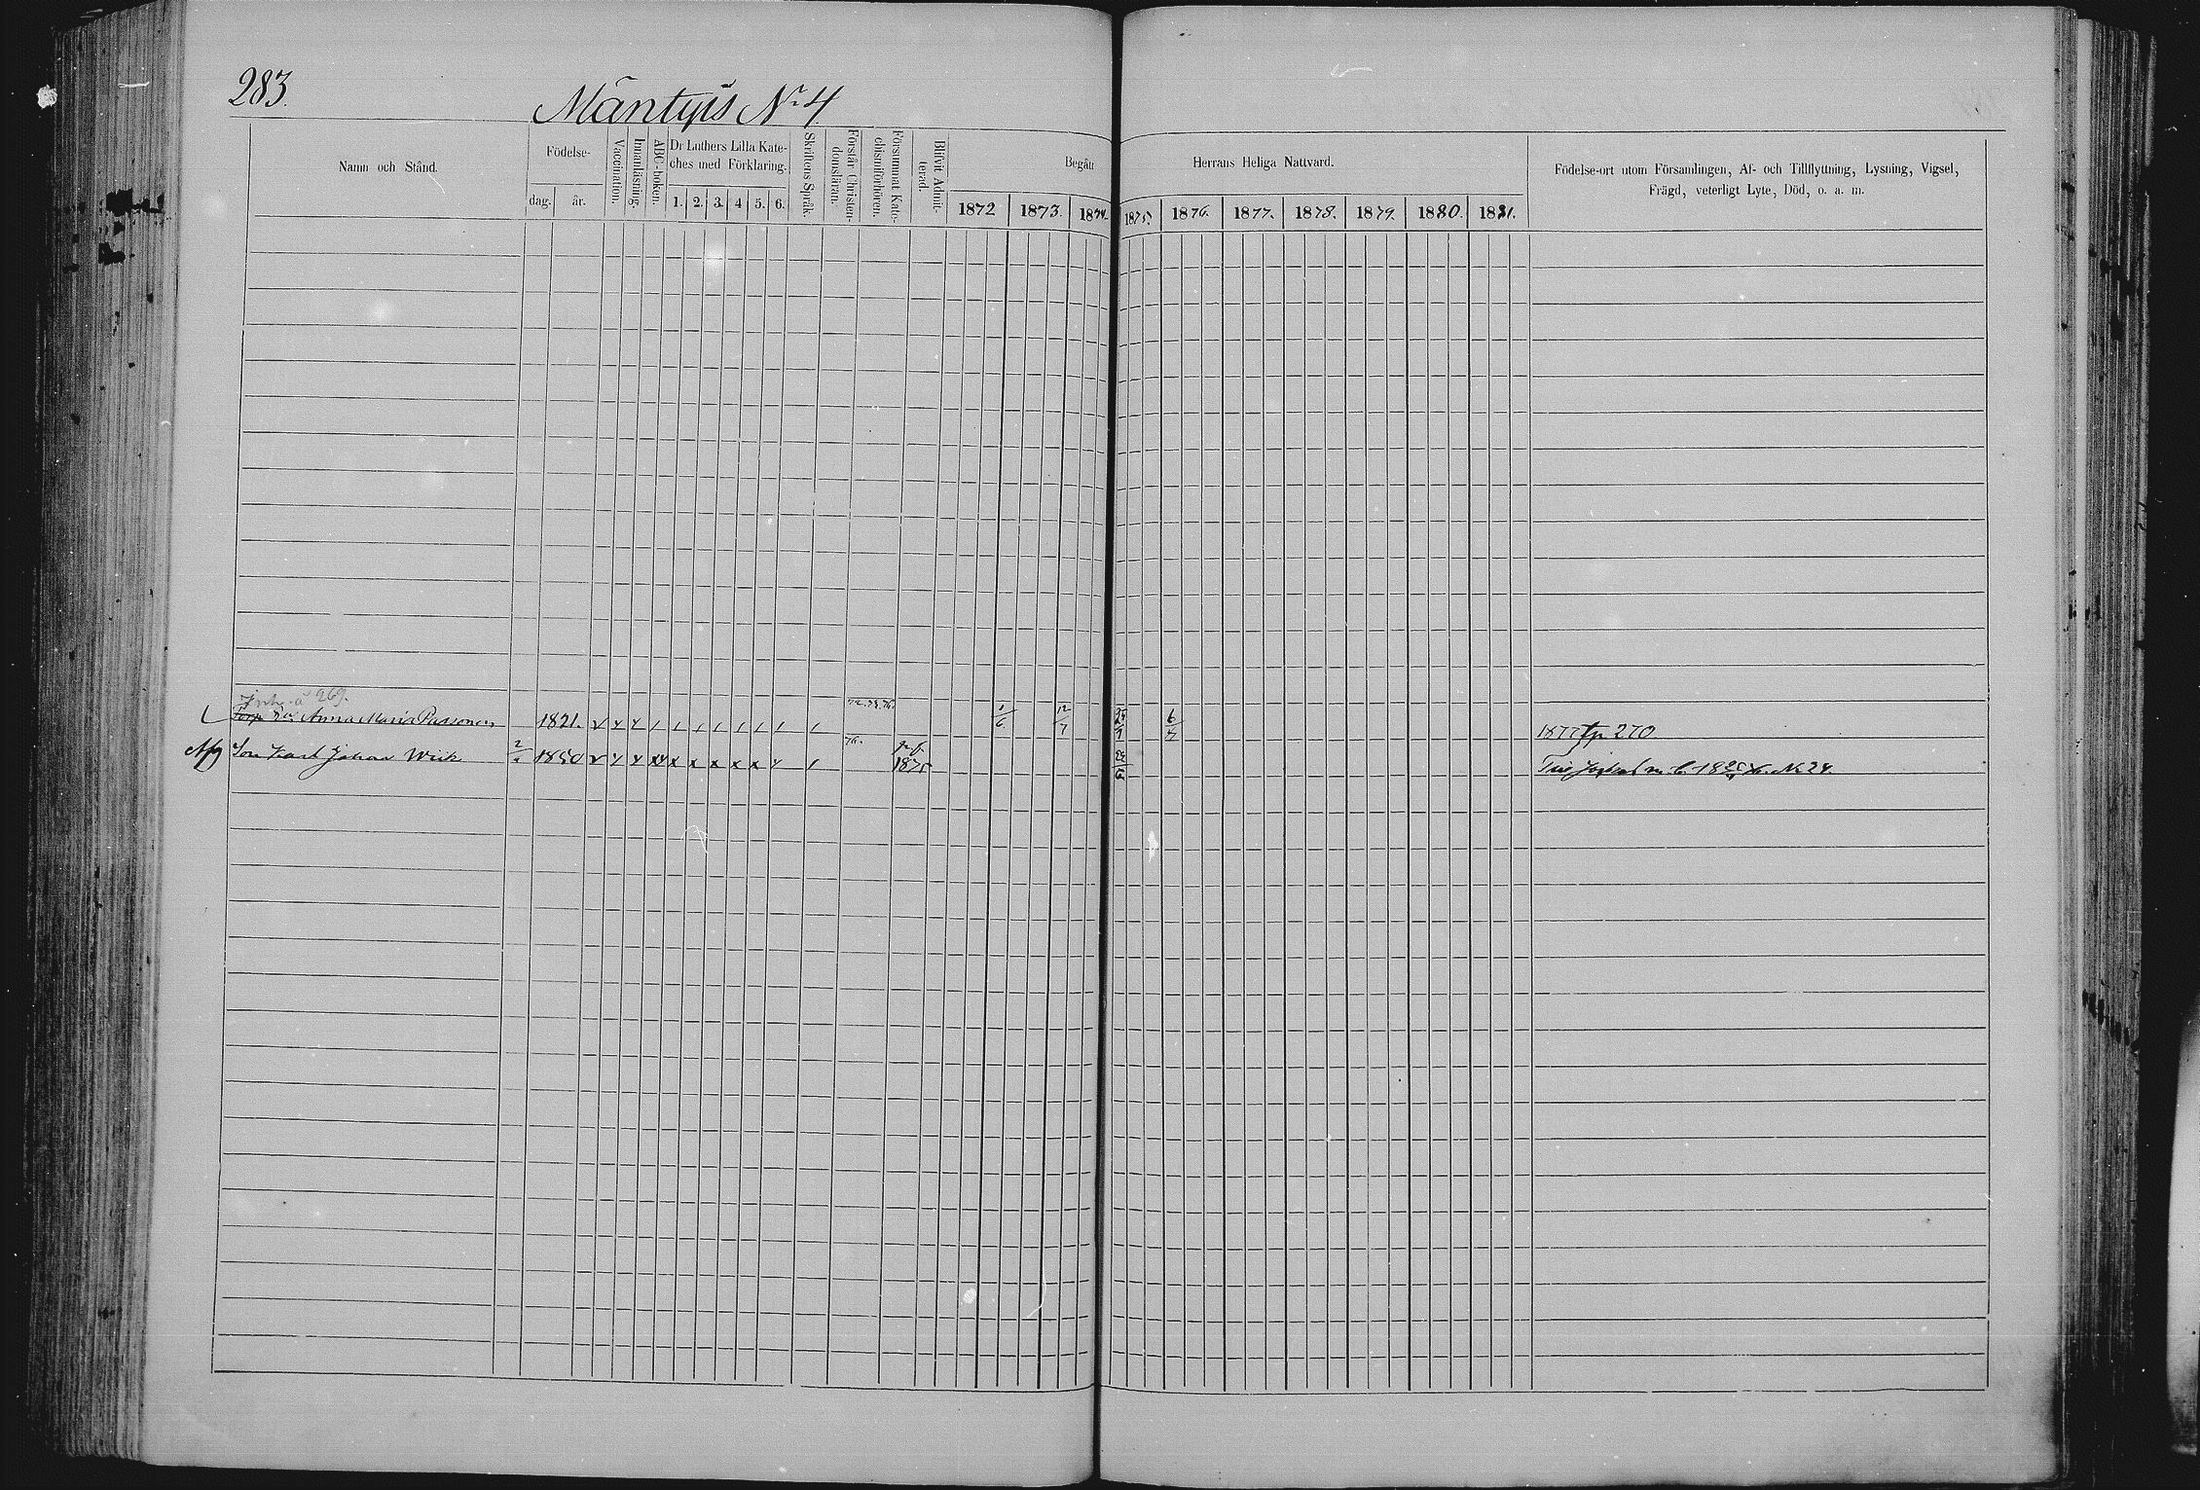 283.
Mäntyis No 4
Namn och Stånd.
Födelse-
dag. år.
Vaccination.
Innanläsning.
ABC-boken.
Dr Luthers Lilla Kate-
ches med Förklaring.
1. 2. 3. 4 5. 6.
Skriftens Språk.
Förstår Christen-
domsläran.
Försummat Kate-
chismiförhören.
Blifvit Admit-
terad.
Begått Herrans Heliga Nattvard.
1872 1873. 1874. 1875. 1876. 1877. 1878. 1879. 1880. 1881.
Födelse-ort utom Församlingen, Af- och Tillflyttning, Lysning, Vigsel,
Frägd, veterligt Lyte, Död, o. a. m.
269.
Anna Maria Passonen 1821. 1/6 12/7 6/7 1877 p 270
Son Karl Johan Wick 1850 76. 1875 No 24.